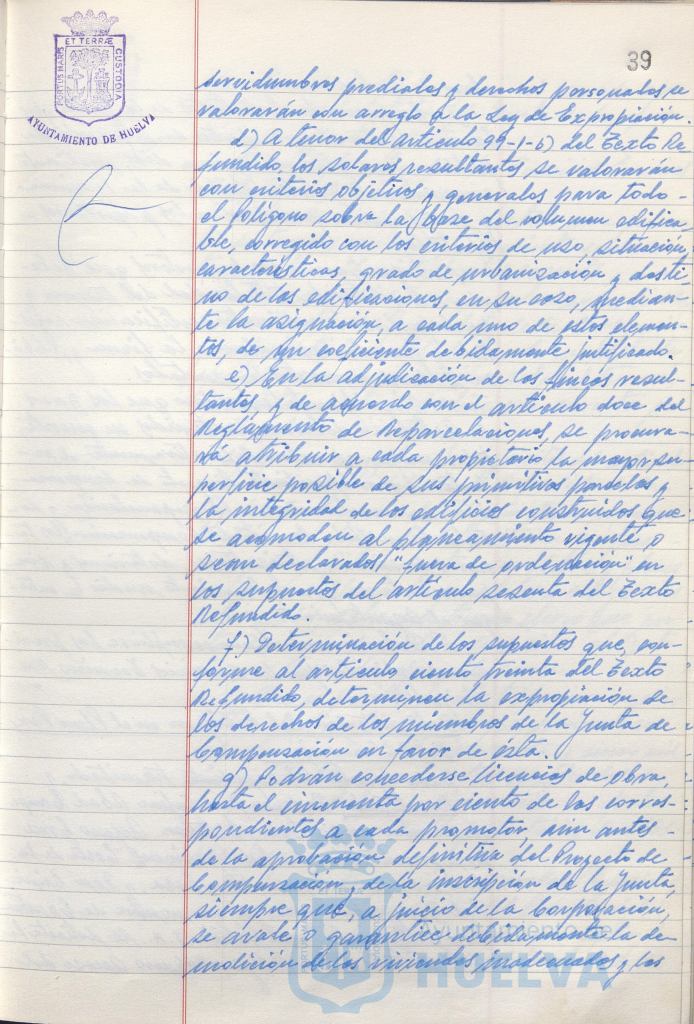 39
PORTUS MARIS
ET TERRÆ
CUSTODIA
AYUNTAMIENTO DE HUELVA
servidumbres prediales y derechos personales se
valorarán con arreglo a la Ley de Expropiación.
d) A tenor del articulo 99-1-b) del Texto Re
fundido, los solares resultantes se valorarán
con criterios objetivos y generales para todo-
el Polígono sobre la base del volumen edifica
ble, corregido con los criterios de uso, situación,
características, grado de urbanización y desti
no de las edificaciones, en su caso, median-
te la asignación, a cada uno de estos elemen-
tos, de un coeficiente debidamente justificado.
e) En la adjudicación de las fincas resul-
tantes, y de acuerdo con el artículo doce del
Reglamento de Reparcelaciones, se procura-
rá atribuir a cada propietario la mayor su-
perficie posible de sus primitivas parcelas y
la integridad de los edificios construidos que-
se acomoden al planeamiento vigente o
sean declarados "fuera de ordenación" en
los supuestos del artículo sesenta del Texto
Refundido.
f) Determinación de los supuestos que, con-
forme al artículo ciento treinta del Texto
Refundido, determinen la expropiación de
los derechos de los miembros de la Junta de
Compensación en favor de ésta.
g) Podrán concederse licencias de obra,
hasta el cincuenta por ciento de las corres-
pondientes a cada promotor, aún antes-
de la aprobación definitiva del Proyecto de-
Compensación, y de la inscripción de la Junta,
siempre que, a juicio de la Corporación,
se avale o garantice debidamente la de-
molición de las viviendas inadecuadas y los
Ayuntamiento de
HUELVA